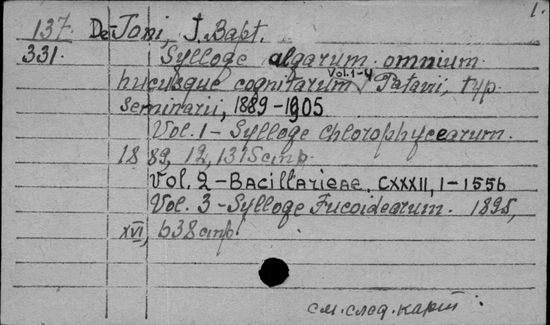 1.
137. De-Toni, J. Bapt.
331. Sylloge algarum omnium
hucusque cognitarum Vol. 1-4 Patavii, typ.
seminarii, 1889-1905
Vol. 1 - Sylloge Chlorophycearum.
1889, 12, 1315 cmp.
Vol. 2 - Bacillarieae, CXXXII, 1-1556
Vol. 3 - Sylloge Fucoidearum. 1895,
XVI, 638 cmp
см. след. карт